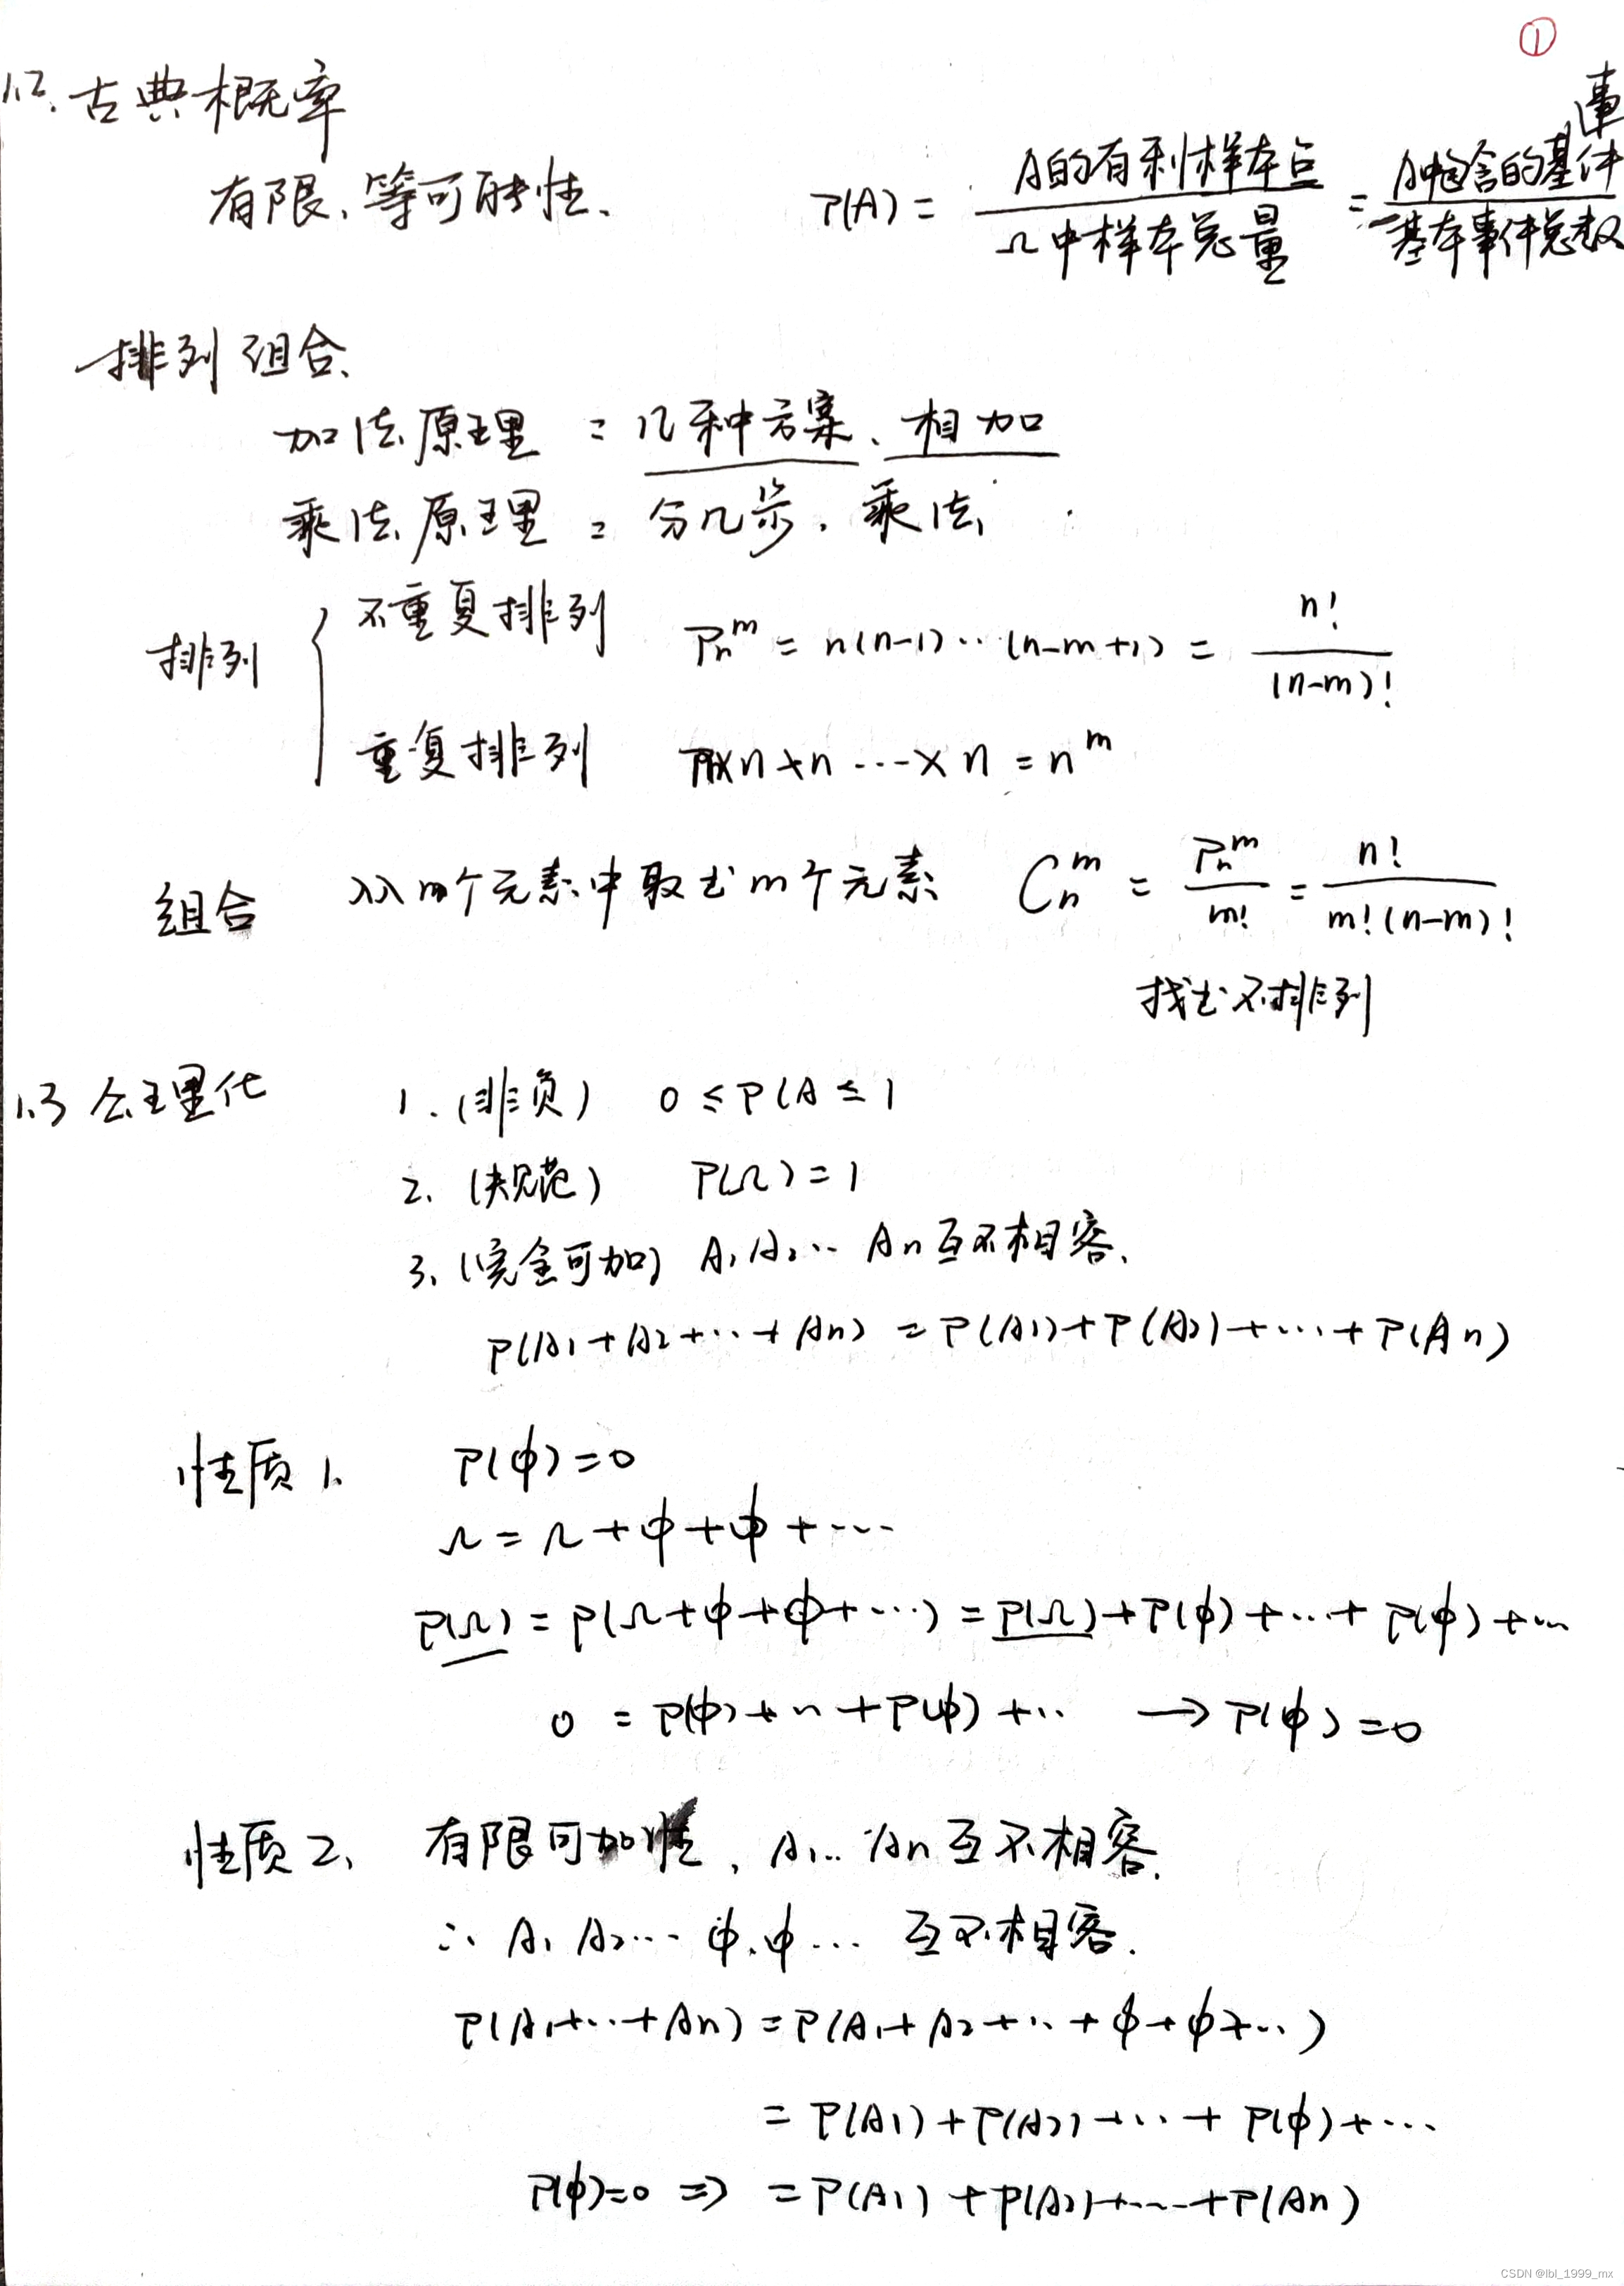 ①
1.2. 古典概率
有限、等可能性、 P(A) = A的有利样本点 / Ω中样本总量 = A中包含的基件 / 基本事件总数
事
排列组合、
加法原理 = 几种方案、相加
乘法原理 = 分几步, 乘法
排列 { 不重复排列 Pₙᵐ = n(n-1)…(n-m+1) = n! / (n-m)!
重复排列 n×n…×n = nᵐ
组合 从n个元素中取出m个元素 Cₙᵐ = Pₙᵐ / m! = n! / m!(n-m)!
找出不排列
1.3 公理化 1. (非负) 0 ≤ P(A ≤ 1
2. (规范) P(Ω) = 1
3. (完全可加) A₁ A₂… An互不相容.
P(A1+A2+…+An) = P(A1)+P(A2)+…+P(An)
性质1. P(φ)=0
Ω = Ω+φ+φ+…
P(Ω) = P(Ω+φ+φ+…) = P(Ω)+P(φ)+…+P(φ)+…
0 = P(φ)+…+P(φ)+… → P(φ)=0
性质2. 有限可加性, A₁… An互不相容.
∴ A₁ A₂… φ.φ… 互不相容.
P(A₁+…+An) = P(A₁+A2+…+φ+φ+…)
= P(A1)+P(A2)+…+P(φ)+…
P(φ)=0 ⇒ = P(A1)+P(A2)+…+P(An)
CSDN @lbl_1999_mx